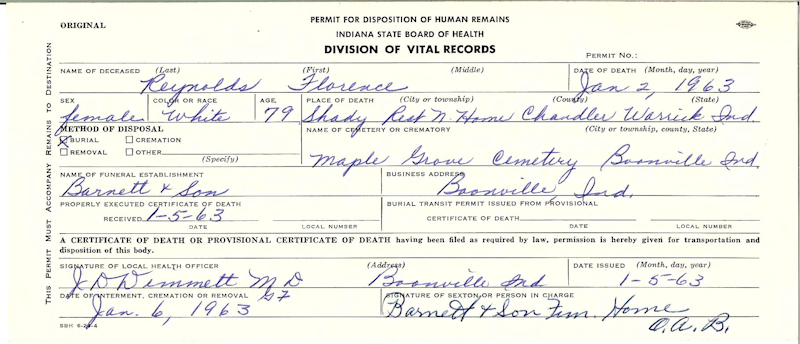 ORIGINAL
PERMIT FOR DISPOSITION OF HUMAN REMAINS
INDIANA STATE BOARD OF HEALTH
DIVISION OF VITAL RECORDS
PERMIT NO.:
THIS PERMIT MUST ACCOMPANY REMAINS TO DESTINATION
NAME OF DECEASED (Last) (First) (Middle) DATE OF DEATH (Month, day, year)
Reynolds Florence Jan 2, 1963
SEX COLOR OR RACE AGE PLACE OF DEATH (City or township) (County) (State)
female White 79 Shady Rest N. Home Chandler Warrick Ind
METHOD OF DISPOSAL NAME OF CEMETERY OR CREMATORY (City or township, county, State)
BURIAL CREMATION
REMOVAL OTHER
(Specify)
Maple Grove Cemetery Boonville Ind.
NAME OF FUNERAL ESTABLISHMENT BUSINESS ADDRESS
Barnett & Son Boonville, Ind.
PROPERLY EXECUTED CERTIFICATE OF DEATH BURIAL TRANSIT PERMIT ISSUED FROM PROVISIONAL
RECEIVED 1-5-63 CERTIFICATE OF DEATH
DATE LOCAL NUMBER DATE LOCAL NUMBER
A CERTIFICATE OF DEATH OR PROVISIONAL CERTIFICATE OF DEATH having been filed as required by law, permission is hereby given for transportation and
disposition of this body.
SIGNATURE OF LOCAL HEALTH OFFICER (Address) DATE ISSUED (Month, day, year)
J D Wimmett M D Boonville Ind 1-5-63
DATE OF INTERMENT, CREMATION OR REMOVAL SIGNATURE OF SEXTON OR PERSON IN CHARGE
Jan. 6, 1963 Barnett & Son Fun. Home
O.A.B.